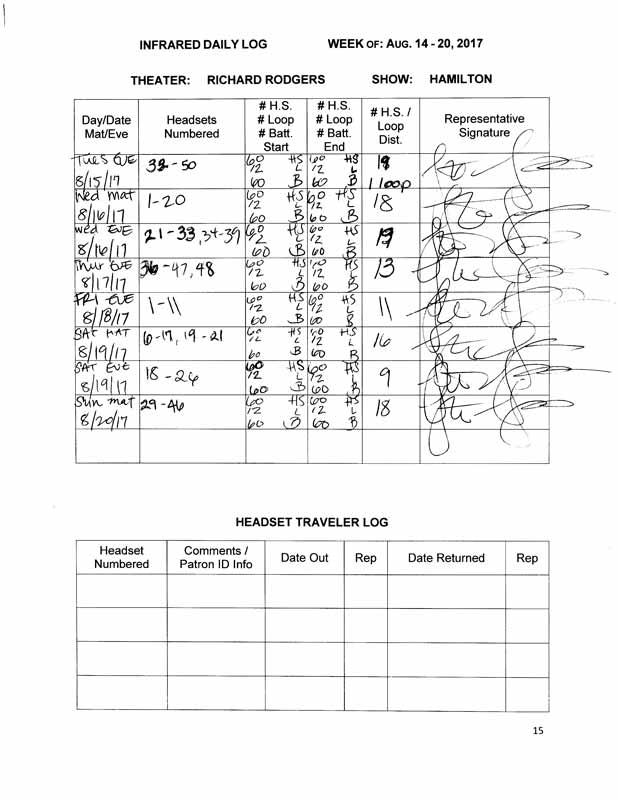 INFRARED DAILY LOG WEEK OF: AUG. 14 - 20, 2017
THEATER: RICHARD RODGERS SHOW: HAMILTON
Day/Date
Mat/Eve
Headsets
Numbered
# H.S.
# Loop
# Batt.
Start
# H.S.
# Loop
# Batt.
End
# H.S. /
Loop
Dist.
Representative
Signature
Tues EVE
8/15/17
-50
60 HS 60 HS
12 L 12 L
60 B 60 B
1 loop
Wed mat
8/16/17
1-20
60 HS 60 HS
12 L 12 L
60 B 60 B
18
Wed EVE
8/16/17
21-33, 34-39
60 HS 60 HS
12 L 12 L
60 B 60 B
Thur EVE
8/17/17
36-47, 48
60 HS 60 HS
12 L 12 L
60 B 60 B
13
FRI EVE
8/18/17
1-11
60 HS 60 HS
12 L 12 L
60 B 60 B
11
SAT MAT
8/19/17
6-17, 19-21
60 HS 60 HS
12 L 12 L
60 B 60 B
16
SAT EVE
8/19/17
18-26
60 HS 60 HS
12 L 12 L
60 B 60 B
9
Sun mat
8/20/17
29-46
60 HS 60 HS
12 L 12 L
60 B 60 B
18
HEADSET TRAVELER LOG
Headset
Numbered
Comments /
Patron ID Info
Date Out
Rep
Date Returned
Rep
15